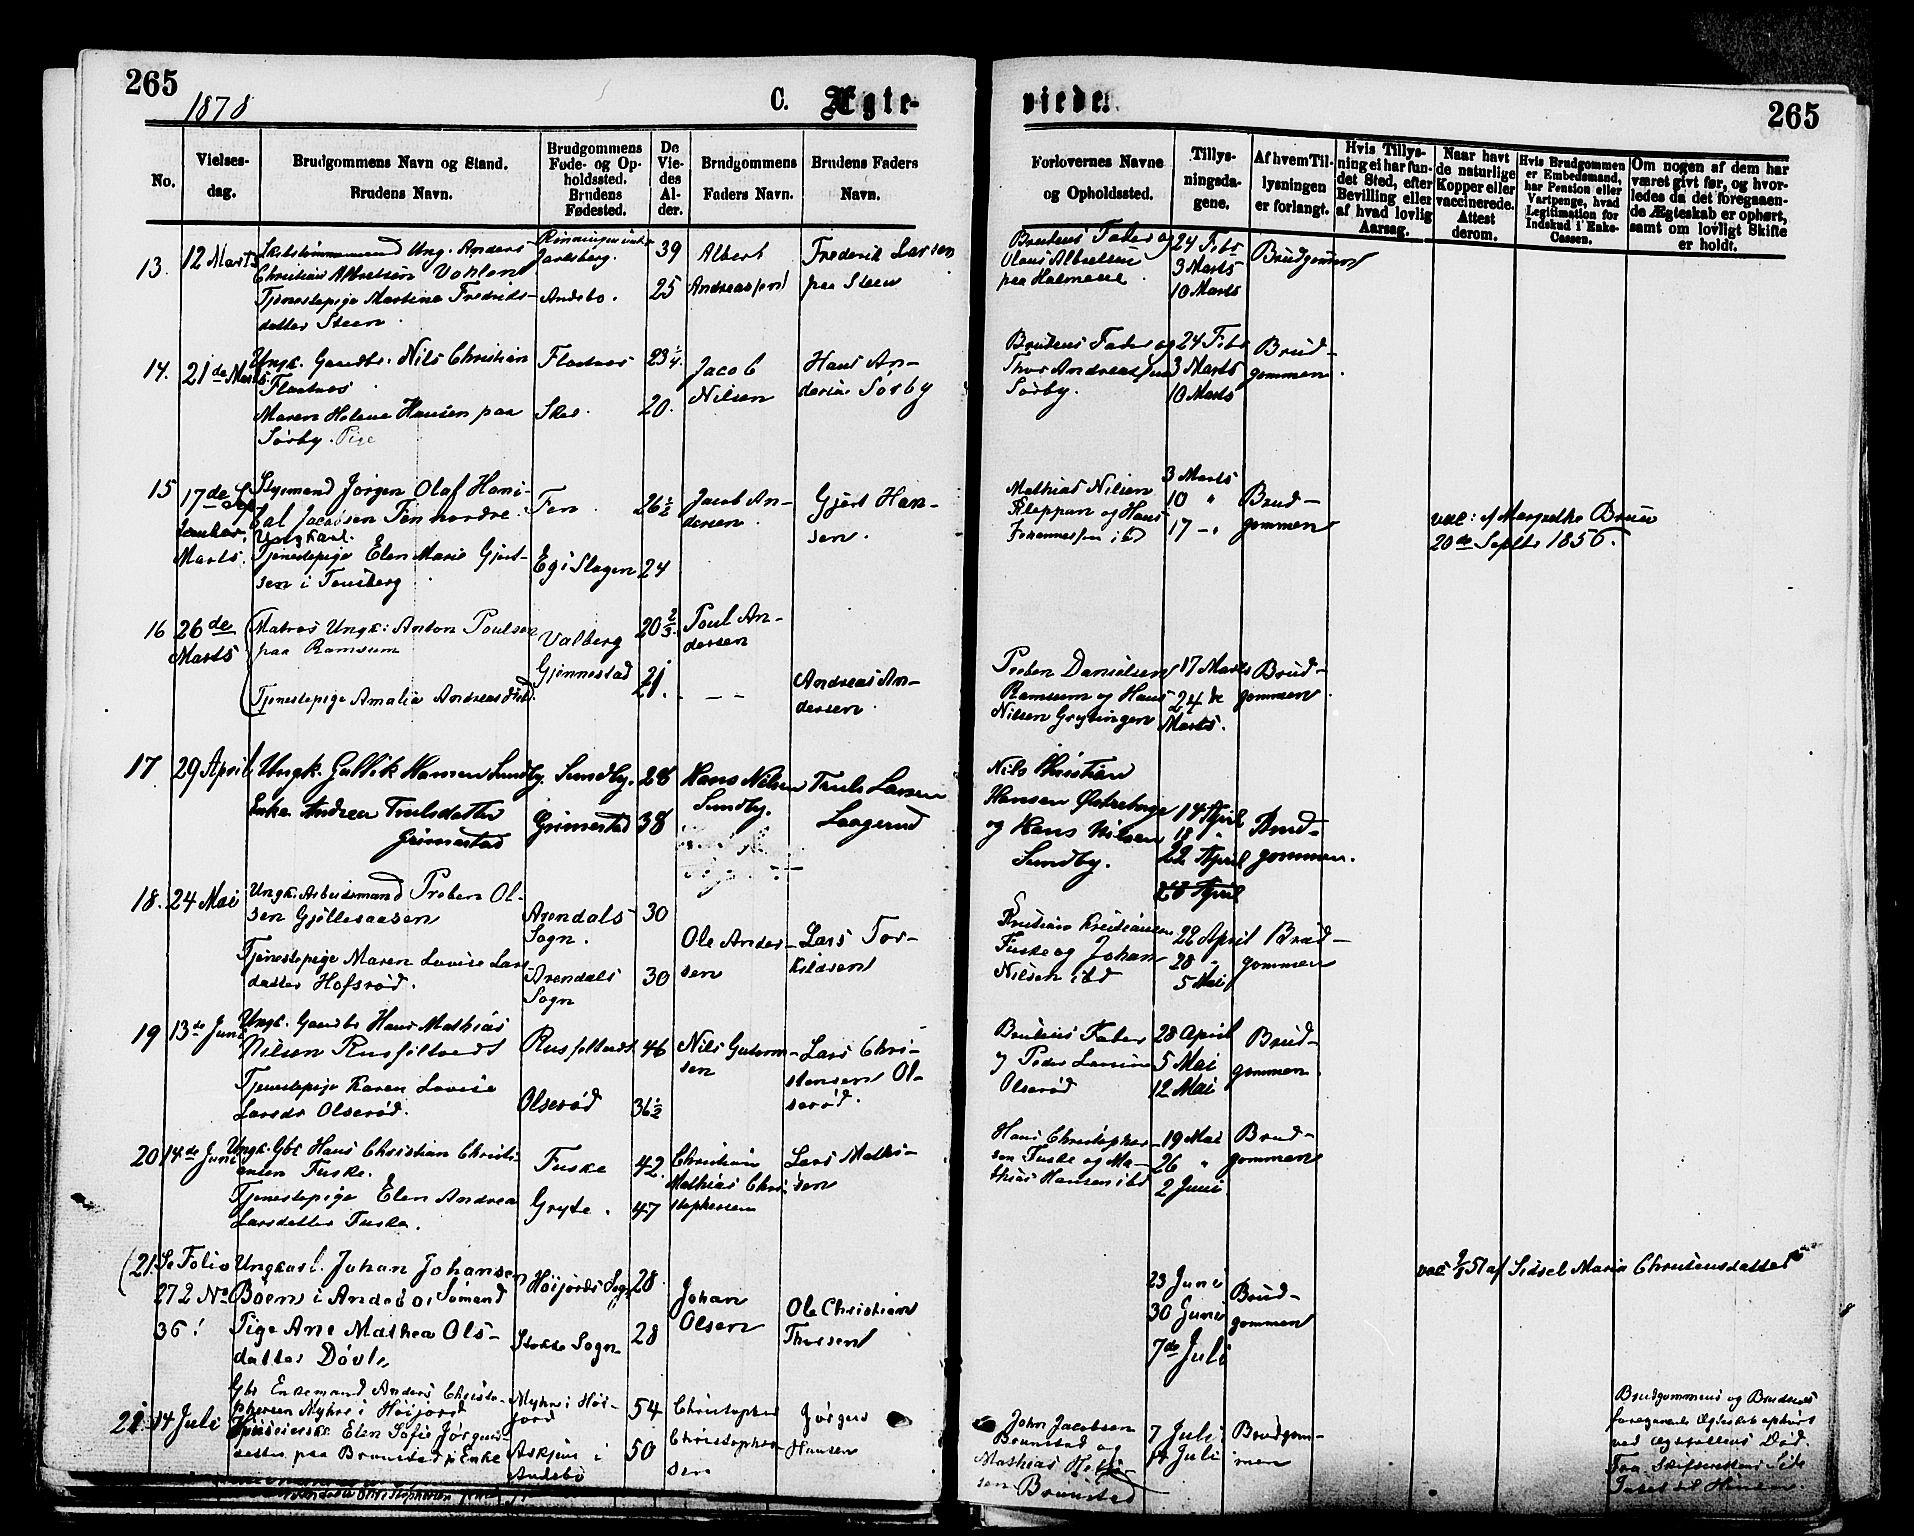 265
1878
C. Ægte-
viede.
265
No.
Vielses-
dag.
Brudgommens Navn og Stand.
Brudens Navn.
Brudgommens
Føde- og Op-
holdssted.
Brudens
Fødested.
De
Vie-
des
Al-
der.
Brudgommens
Faders Navn.
Brudens Faders
Navn.
Forlovernes Navne
og Opholdssted.
Tillys-
ningsda-
gene.
Af hvem Til-
lysningen
er forlangt.
Hvis Tillys-
ning ei har fun-
det Sted, efter
Bevilling eller
af hvad lovlig
Aarsag.
Naar havt
de naturlige
Kopper eller
vaccinerede.
Attest
derom.
Hvis Brudgommen
er Embedsmand,
har Pension eller
Vartpenge, hvad
Legitimation for
Indskud i Enke-
Cassen.
Om nogen af dem har
været givt før, og hvor-
ledes da det foregaaen-
de Ægteskab er ophørt,
samt om lovligt Skifte
er holdt.
13. 12 Marts
Ung. Anders
Christian Albretsen Vahlen
Tjenestepige Martine Fredriks-
datter Steen.
Jarlsberg.
Andebo.
39
25
Albert
Andreassen
Frederik Larsen
paa Steen
Brudens Fader og
Olaus Albretsen
paa
24 Febr
3 Marts
10 Marts
Brudgommen
14. 21de Marts
Ungk. Gaardbr. Nils Christian
Flaatnes
Maren Helene Hansen paa
Sørby. Pige
Flaatnes
Skee.
23 1/4
20.
Jacob
Nilsen
Hans An-
dersen Sørby
Brudens Fader og
Thor Andreassen
Sørby.
24 Febr
3 Marts
10 Marts
Brud-
gommen
15 17de
Marts.
Styrmand Jørgen Olaf Hani-
bal Jacobsen Fen nordre.
Ungkarl.
Tjenestepige Elen Marie Gjert-
sen i Tønsberg
Fen.
Eg i Slagen
26 1/2
24
Jacob An-
dersen.
Gjert Han-
sen.
Mathias Nilsen
Kleppan og Hans
Johannessen ibd
3 Marts
10 "
17 - "
Brud-
gommen
vac: af Margrethe Bruun
20de Septbr 1856.
16 26de
Marts
Matros Ungk: Anton Poulsen
paa Ramsum
Tjenestepige Amalie Andreasdtr.
Valberg
Gjennestad
20 2/3
21.
Poul An-
dersen
- - -
Andreas An-
dersen.
Preben Danielsen
Ramsum og Hans
Nilsen Grytingen
17 Marts
24 de
Marts.
Brud-
gommen
17 29 April
Ungk. Gullik Hansen Sundby.
Enke Andrea Trulsdatter
Grimestad
Sundby.
Grimestad
28
38
Hans Nilsen
Sundby.
Truls Larsen
Laagerud
Nils Christian
Hansen
og Hans Nilsen
Sundby.
14 April
18 "
22 April
28 April
Brud-
gommen.
18. 24 Mai
Ungk. Arbeidsmand Preben Ol-
sen Gjøllesaasen
Tjenestepige Maren Lovise Lars
datter Hofsrød.
Arendals
Sogn.
Arendals
Sogn
30
30
Ole Ander-
sen
Lars Tor-
kildsen
Kristian Kristiansen
Fuske og Johan
Nilsen ibd
22 April
28 "
5 Mai
Brud-
gommen
19 13de Juni
Ungk. Gaardbr Hans Mathias
Nilsen
Tjenestepige Karen Lovise
Larsdr Olserød.
Olserød
46
36 1/2
Nils Guttorm-
sen
Lars Chri-
stensen Ol-
serød.
Brudens Fader
og Peder Larsen
Olserød
28 April
5 Mai
12 Mai
Brud-
gommen
20 14de Juni
Ungk. Gbr Hans Christian Christi-
ansen Fuske.
Tjenestepige Elen Andrea
Larsdatter Fuske.
Fuske
Gryte.
42.
47
Christian
Mathias Chri-
stophersen
Lars Mathi-
sen
Hans Christopher-
sen Fuske og Ma-
thias Hansen ibd
19 Mai
26 "
2 Juni
Brud-
gommen
(21. Se Folio
272 No
36!
Ungkarl. Johan Johansen
Bøen i Andebo, Sømand
Pige Ane Mathea Ols-
datter Døvle
Høijords Sogn
Stokke Sogn
28.
28
Johan
Olsen
Ole Christian
Thorsen
23 Juni
30 Juni
7de Juli
Brud-
gommen
51 af Sidsel Maria Christensdatter
21 14 Juli
Gbr Enkemand Anders Christo-
phersen Myhre i Høijord
Elen Sofie Jørgens
datter paa Brunstad, Enke
Myhre i Høi-
jord
Askjem i
Andebo
54
50
Christopher
Christopher-
sen
Jørgen
Hansen
John Jacobsen
Brunstad og
Mathias
sen Brunstad
7 Juli
14 Juli
Brudgom-
men
Brudgommens og Brudens
foregaaende Ægteskab ophørt
ved Ægtefællens Død.